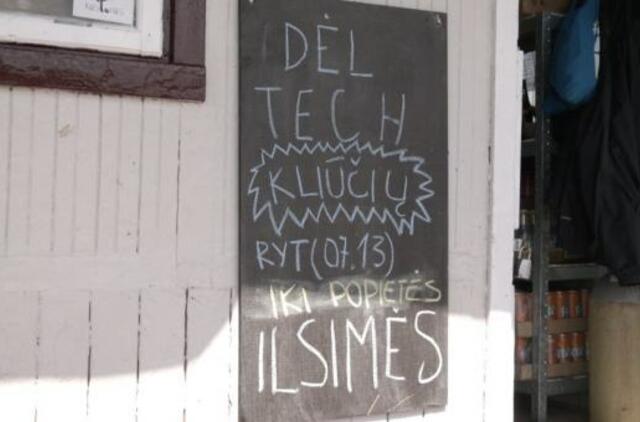 DĖL
TECH
KLIŪČIŲ
RYT(07.13)
IKI POPIETĖS
ILSIMĖS